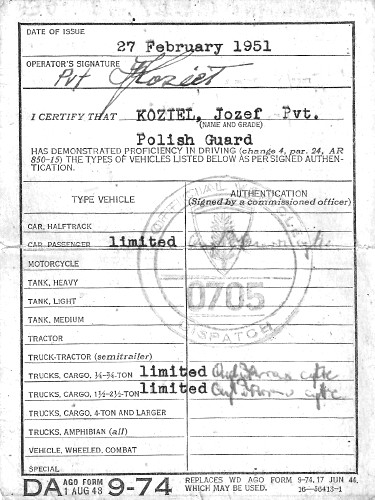 DATE OF ISSUE
27 February 1951
OPERATOR'S SIGNATURE
Pvt JKozieł
I CERTIFY THAT KOZIEL, Jozef Pvt.
(NAME AND GRADE)
Polish Guard
HAS DEMONSTRATED PROFICIENCY IN DRIVING (change 4, par. 24, AR
850-15) THE TYPES OF VEHICLES LISTED BELOW AS PER SIGNED AUTHEN-
TICATION.
TYPE VEHICLE
AUTHENTICATION
(Signed by a commissioned officer)
CAR, HALFTRACK
CAR, PASSENGER limited
MOTORCYCLE
TANK, HEAVY
TANK, LIGHT
TANK, MEDIUM
0705
DISPATCH
TRACTOR
TRUCK-TRACTOR (semitrailer)
TRUCKS, CARGO, ¼-¾-TON limited
TRUCKS, CARGO, 1½-2½-TON limited
TRUCKS, CARGO, 4-TON AND LARGER
TRUCKS, AMPHIBIAN (all)
VEHICLE, WHEELED, COMBAT
SPECIAL
DA AGO FORM 1 AUG 48 9-74
REPLACES WD AGO FORM 9-74, 17 JUN 44,
WHICH MAY BE USED. 16—56413-1